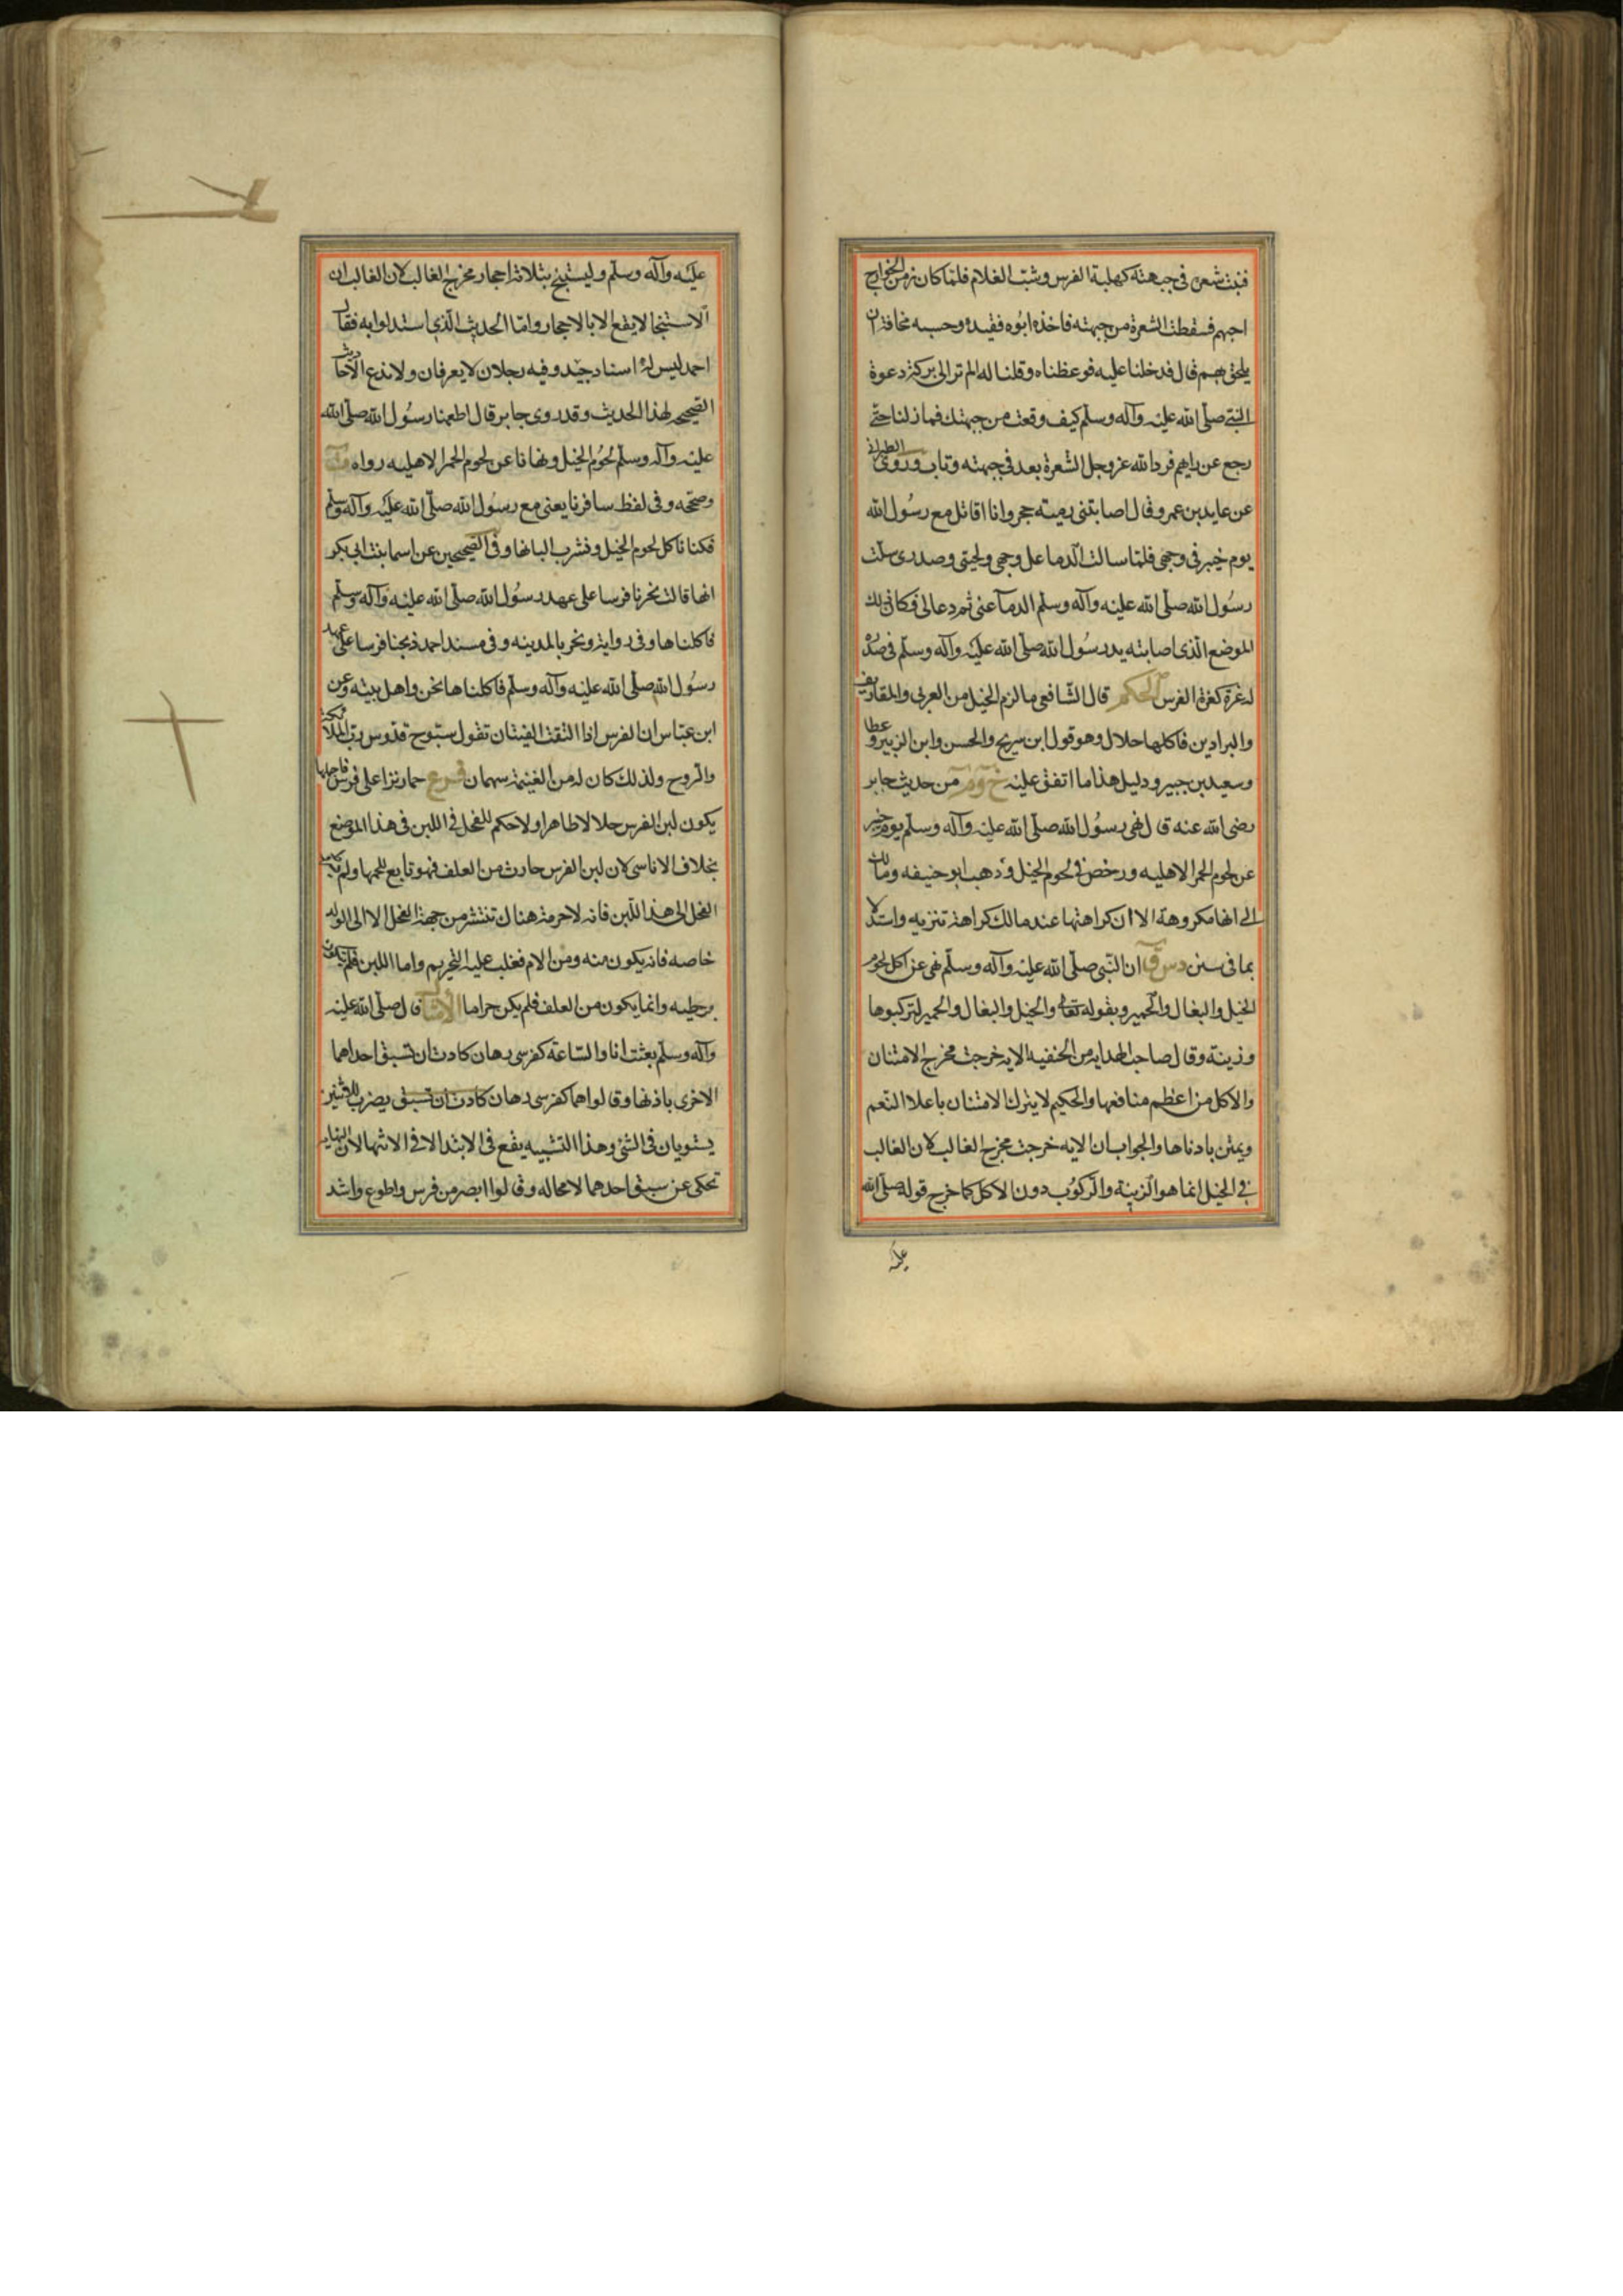 فنبتت شعرة في جبهته كهلبة الفرس وشب الغلام فلما كان زمن الخوارج
اجبهم فسقطت الشعرة من جبهته فاخذه ابوه فقيده وحبسه مخافة ان
يلحق بهم قال فدخلنا عليه فوعظناه وقلنا له الم تر الى بركة دعوة
النبي صلى الله عليه وآله وسلم كيف وقعت من جبهتك فما زلنا حتى
رجع عن رايهم فرد الله عز وجل الشعرة بعد في جبهته وتاب وروى الطبراني
عن عايد بن عمرو قال اصابتني رمية حجر وانا اقاتل مع رسول الله
يوم خيبر في وجهي فلما سالت الدما على وجهي ولحيتي وصدري سلت
رسول الله صلى الله عليه وآله وسلم الدمآ عني ثم دعا لي فكان ذلك
الموضع الذي اصابته يد رسول الله صلى الله عليه وآله وسلم في صدره
له غرة كغرة الفرس الحكم قال الشافعي ما لزم الخيل من العربي والمقاريف
والبرادين فاكلها حلال وهو قول ابن سريج والحسن وابن الزبير وعطا
وسعيد بن جبير ودليل هذا ما اتفق عليه خ وم من حديث جابر
رضى الله عنه قال نهى رسول الله صلى الله عليه وآله وسلم يوم خيبر
عن لحوم الحمر الاهليه ورخص في لحوم الخيل وذهب ابو حنيفه ومالك
الى انها مكروهة الا ان كراهتها عند مالك كراهة تنزيه واستدلا
بما في سنن د س ق ان النبي صلى الله عليه وآله وسلم نهى عن اكل لحوم
الخيل والبغال والحمير وبقوله تعالى والخيل والبغال والحمير لتركبوها
وزينة وقال صاحب الهداية من الحنفيه الايه خرجت مخرج الامتنان
والاكل من اعظم منافعها والحكيم لا يترك الامتنان باعلا النعم
ويمتن بادناها والجواب ان الايه خرجت مخرج الغالب لان الغالب
في الخيل انما هو الزينة والركوب دون الاكل كما خرج قوله صلى الله
عليه
عليه وآله وسلم وليستنج بثلاثة احجار مخرج الغالب لان الغالب ان
الاستنجا لا يقع الا بالاحجار واما الحديث الذي استدلوا به فقال
احمد ليس له اسناد جيد وفيه رجلان لا يعرفان ولا ندع الاحاديث
الصحيحه لهذا الحديث وقد روى جابر قال اطعمنا رسول الله صلى الله
عليه وآله وسلم لحوم الخيل ونهانا عن لحوم الحمر الاهليه رواه
وصححه وفي لفظ سافرنا يعني مع رسول الله صلى الله عليه وآله وسلم
فكنا ناكل لحوم الخيل ونشرب البانها وفي الصحيحين عن اسما بنت ابي بكر
انها قالت نحرنا فرسا على عهد رسول الله صلى الله عليه وآله وسلم
فاكلناها وفي رواية ونحن بالمدينه وفي مسند احمد ذبحنا فرسا على عهد
رسول الله صلى الله عليه وآله وسلم فاكلناها نحن واهل بيته وعن
ابن عباس ان الفرس اذا التقت الفيتان تقول سبوح قدوس رب الملائكة
والروح ولذلك كان له من الغنيمة سهمان فرع حمار نزا على فرس فاحبلها
يكون لبن الفرس حلالا طاهرا ولا حكم للفحل في اللبن في هذا الموضع
بخلاف الاناسي لان لبن الفرس حادث من العلف فهو تابع للحمها ولم
الفحل الى هذا اللبن فانه لا حرمة هناك تنتشر من جهة الفحل الا الى الولد
خاصه فانه يكون منه ومن الام فغلب عليه التحريم واما اللبن فلم يتكون
بوطيه وانما يكون من العلف فلم يكن حراما الامثال قال صلى الله عليه
وآله وسلم بعثت انا والساعة كفرسي رهان كادت ان تسبق احداهما
الاخرى باذنها وقالوا هما كفرسي رهان كادت ان تسبق يضرب للاثنين
يستويان في الشئ وهذا التشبيه يقع في الابتدا لا في الانتها لان النهاية
تحكى عن سبق احدهما لا محاله وقالوا ابصر من فرس واطوع واشد